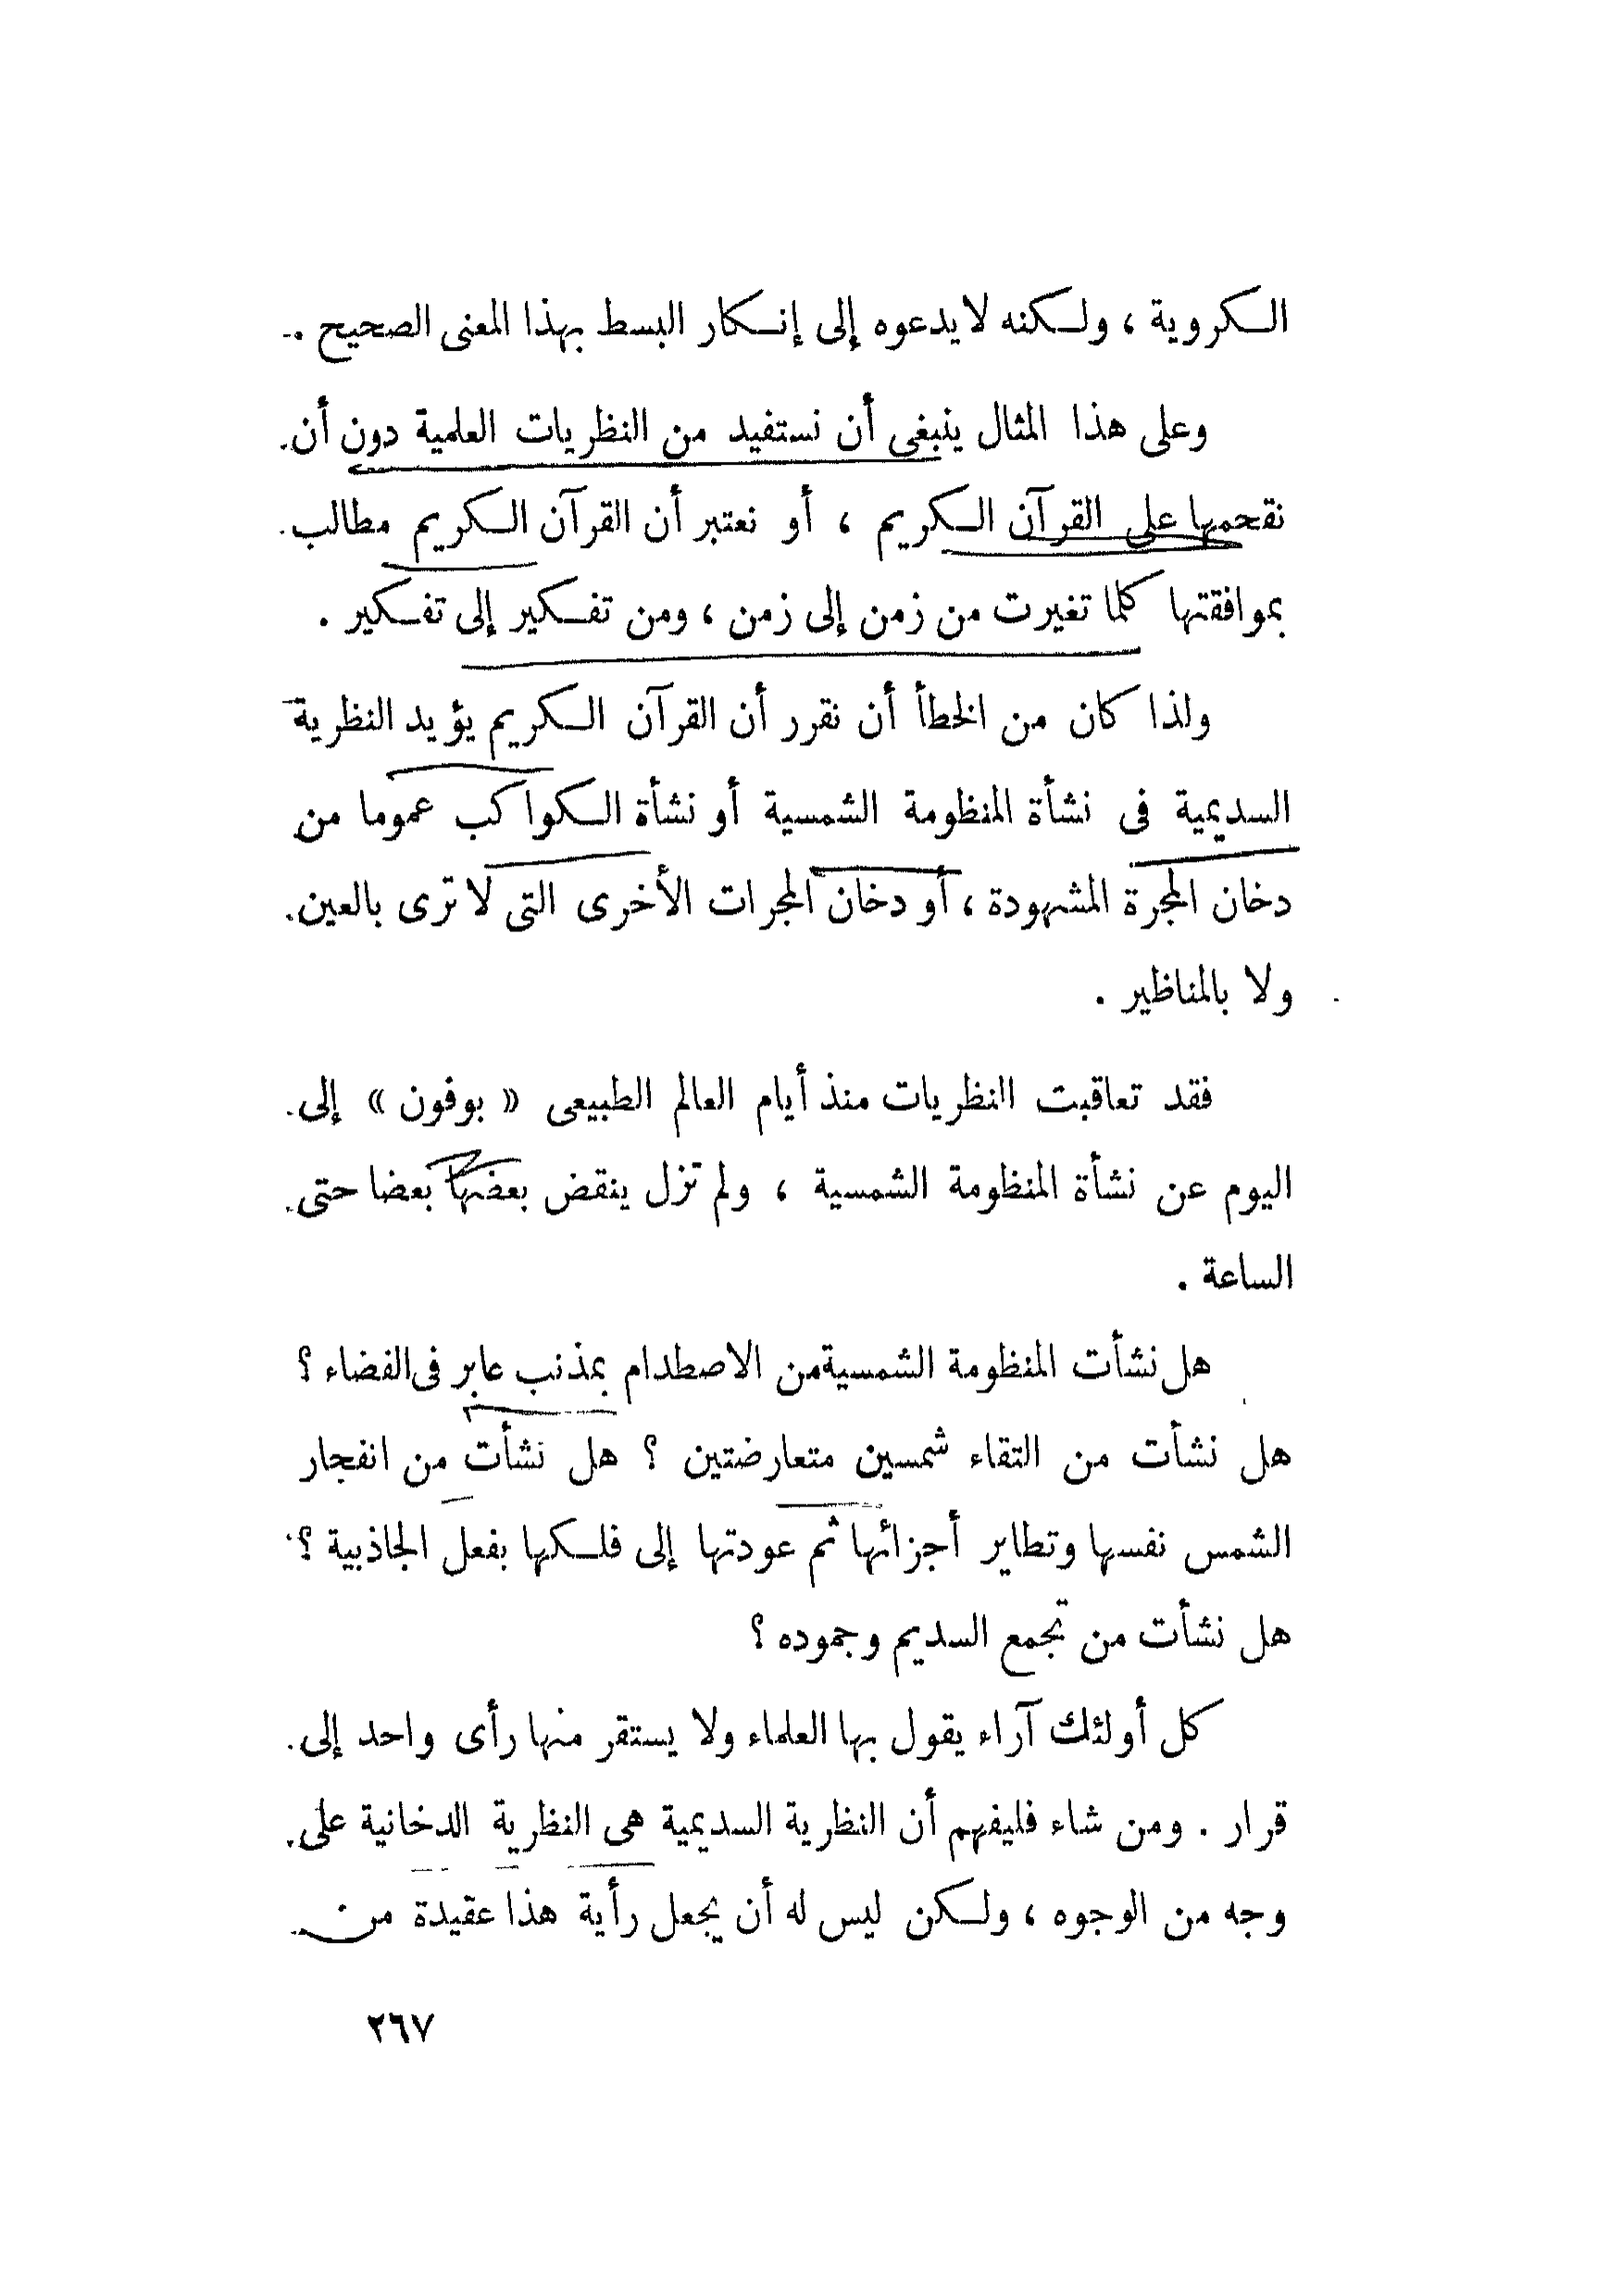 الكروية ، ولكنه لا يدعوه إلى إنكار البسط بهذا المعنى الصحيح .
وعلى هذا المثال ينبغى أن نستفيد من النظريات العلمية دون أن
نقحمها على القرآن الكريم ، أو نعتبر أن القرآن الكريم مطالب
بموافقتها كلما تغيرت من زمن إلى زمن ، ومن تفكير إلى تفكير .
ولذا كان من الخطأ أن نقرر أن القرآن الكريم يؤيد النظرية
السديمية فى نشأة المنظومة الشمسية أو نشأة الكواكب عموما من
دخان المجرة المشهودة ، أو دخان المجرات الأخرى التى لا ترى بالعين
ولا بالمناظير .
فقد تعاقبت النظريات منذ أيام العالم الطبيعى « بوفون » إلى
اليوم عن نشأة المنظومة الشمسية ، ولم تزل ينقض بعضها بعضا حتى
الساعة .
هل نشأت المنظومة الشمسية من الاصطدام بمذنب عابر فى الفضاء ؟
هل نشأت من التقاء شمسين متعارضتين ؟ هل نشأت من انفجار
الشمس نفسها وتطاير أجزائها ثم عودتها إلى فلكها بفعل الجاذبية ؟
هل نشأت من تجمع السديم وجموده ؟
كل أولئك آراء يقول بها العلماء ولا يستقر منها رأى واحد إلى
قرار . ومن شاء فليفهم أن النظرية السديمية هى النظرية الدخانية على
وجه من الوجوه ، ولكن ليس له أن يجعل رأية هذا عقيدة من
٢٦٧